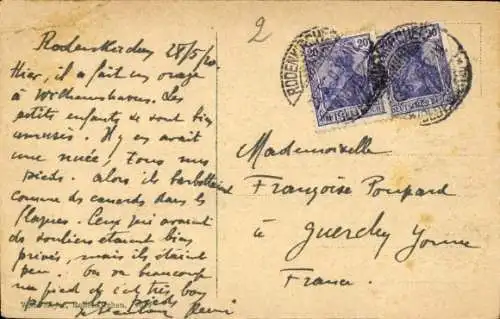 Rodenkirchen 28/5/20.
Hier, il a fait un orage
à Wilhelmshaven. Les
petits enfants se sont bien
amusés. Il y en avait
une nuée, tous nus
pieds. Alors ils barbottaient
comme des canards dans les
flaques. Ceux qui avaient
des souliers étaient bien
privés, mais ils étaient
peu. On va beaucoup
nu pied et c'est très bon
pour les pieds
Henri
2
RODENKIRCHEN
20
20
DEUTSCHES REICH
DEUTSCHES REICH
Mademoiselle
Françoise Poupard
à Guerchy Yonne
France.